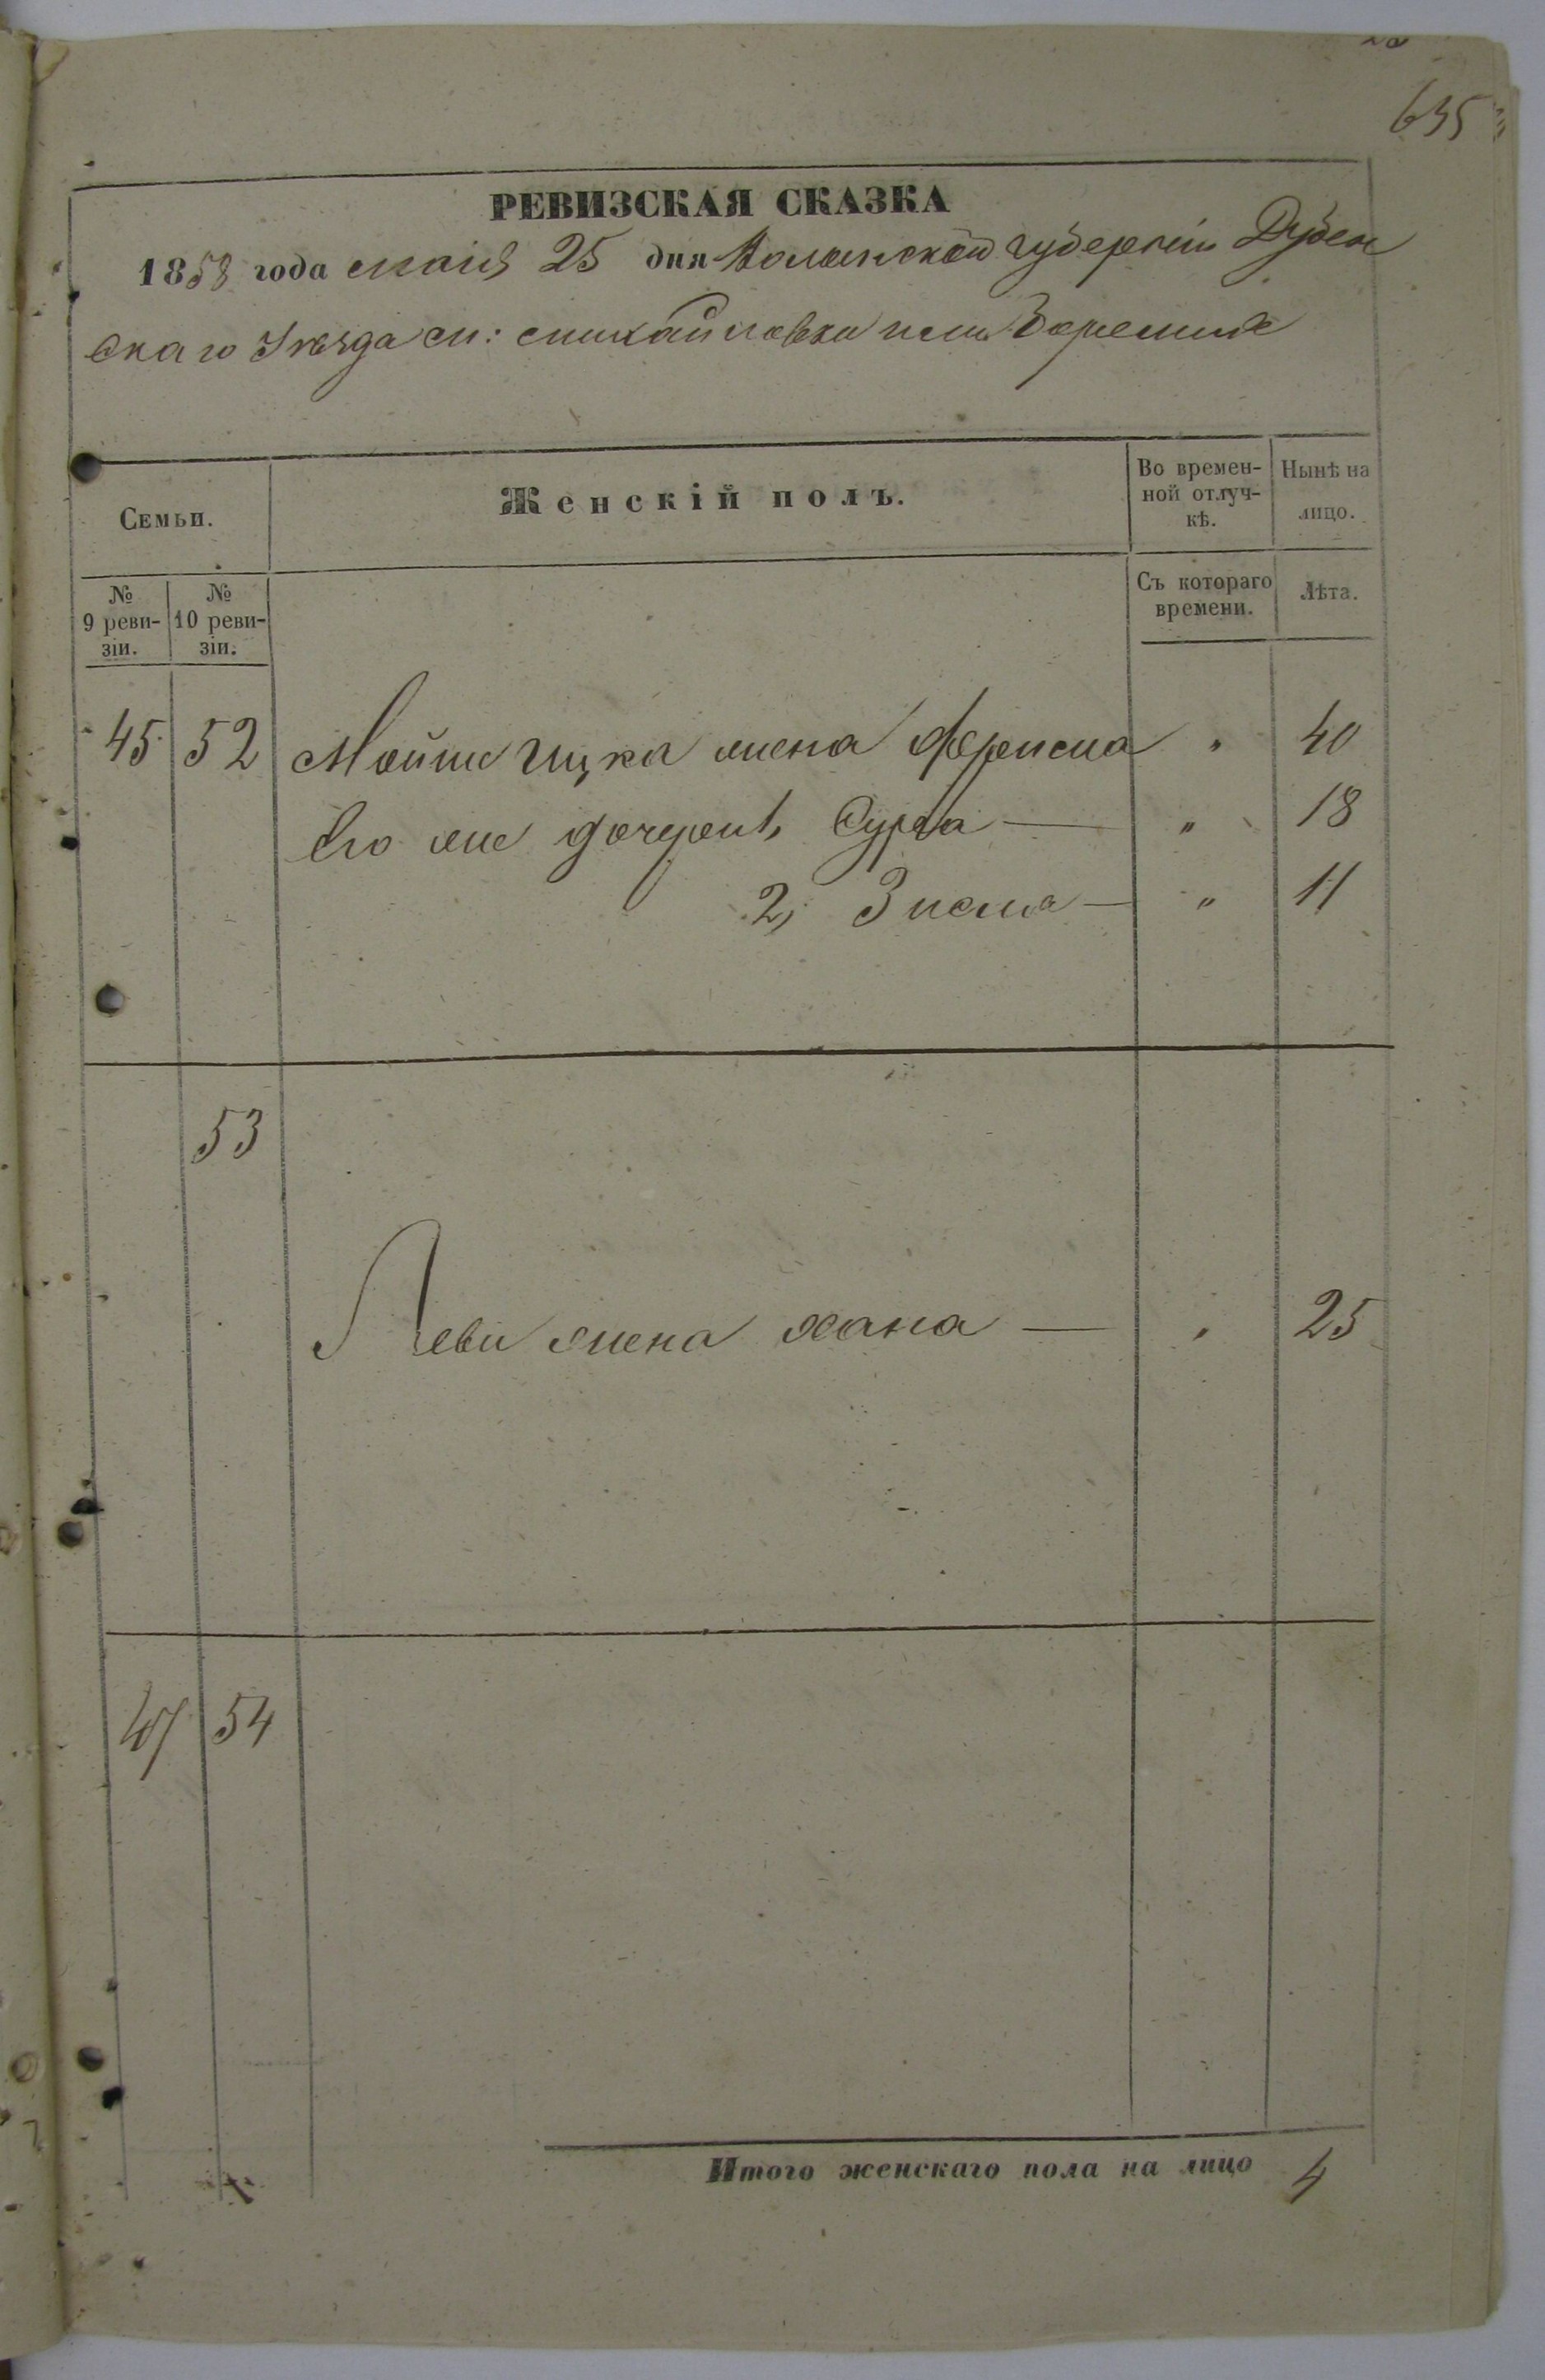 635
РЕВИЗСКАЯ СКАЗКА
1858 года маія 25 дня Волынской губерніи Дубен
скаго Уѣзда м: михайловки или Боремля
Семьи.
Женскій полъ.
Во времен-
ной отлуч-
кѣ.
Нынѣ на
лицо.
№
9 реви-
зіи.
№
10 реви-
зіи.
Съ котораго
времени.
Лѣта.
45 52 Мойше Ицка жена " 40
Его же дочери 1, Сура — " 18
2, Зисла — " 11
53
Леви жена хана — " 25
47 54
Итого женскаго пола на лицо 4